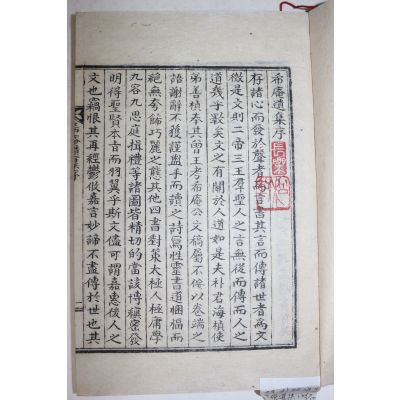 希庵遺集序
存諸心而發於聲者爲言書其言而傳諸世者爲文
微是文則二帝三王羣聖人之言無從而傳而人之
道幾乎歇矣文之有關於人道如是夫朴君海楨使
弟善楨奉其曾王考希庵公文稿屬不侫以卷端之
語謝辭不獲謹盥手而讀之詩寫性靈書道悃愊而
絶無夸餙巧麗之態其他四書對策太極人極庸學
九容九思揖禮等諸圖皆精切的當該博縝密發
明得聖賢本旨而羽翼乎斯文儘可謂嘉惠後人之
文也竊恨其再經鬱攸嘉言妙諦不盡傳於世也其